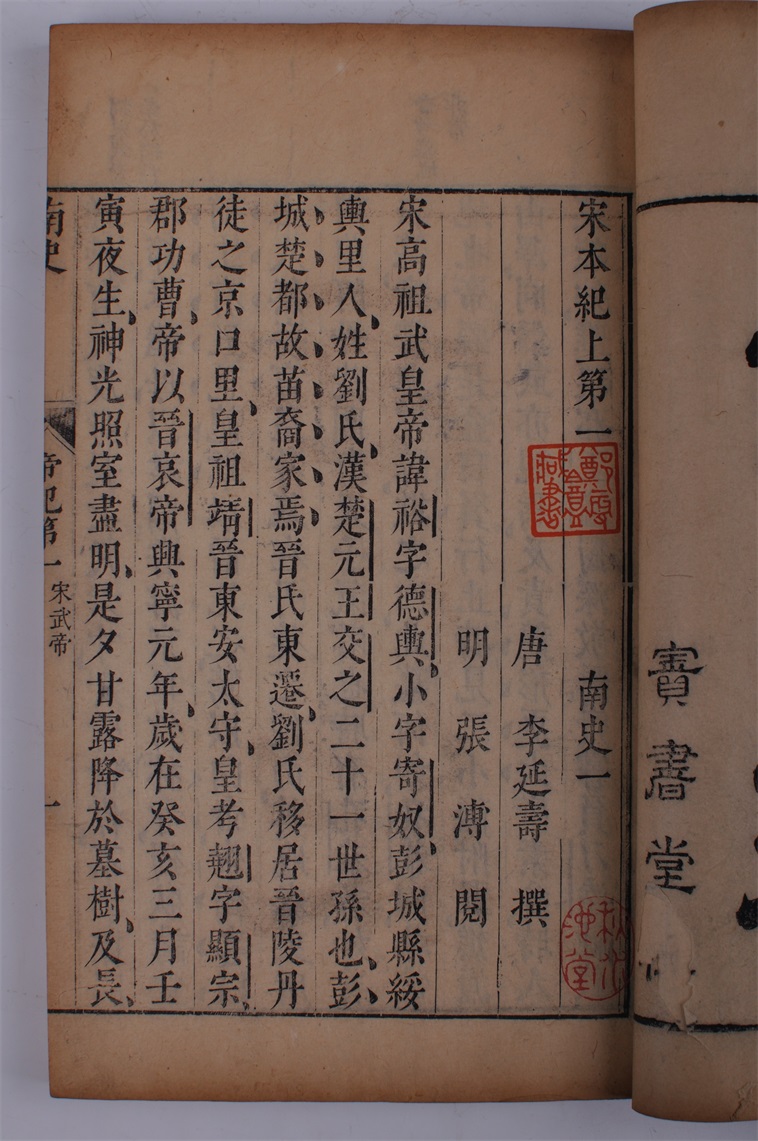 寶書堂
宋本紀上第一 南史一
唐 李延壽 撰
明 張溥 閱
宋高祖武皇帝諱裕字德輿小字寄奴彭城縣綏
輿里人姓劉氏漢楚元王交之二十一世孫也彭
城楚都故苗裔家焉晉氏東遷劉氏移居晉陵丹
徒之京口里皇祖靖晉東安太守皇考翹字顯宗
郡功曹帝以晉哀帝興寧元年歲在癸亥三月壬
寅夜生神光照室盡明是夕甘露降於墓樹及長
南史 帝紀第一 宋武帝 一